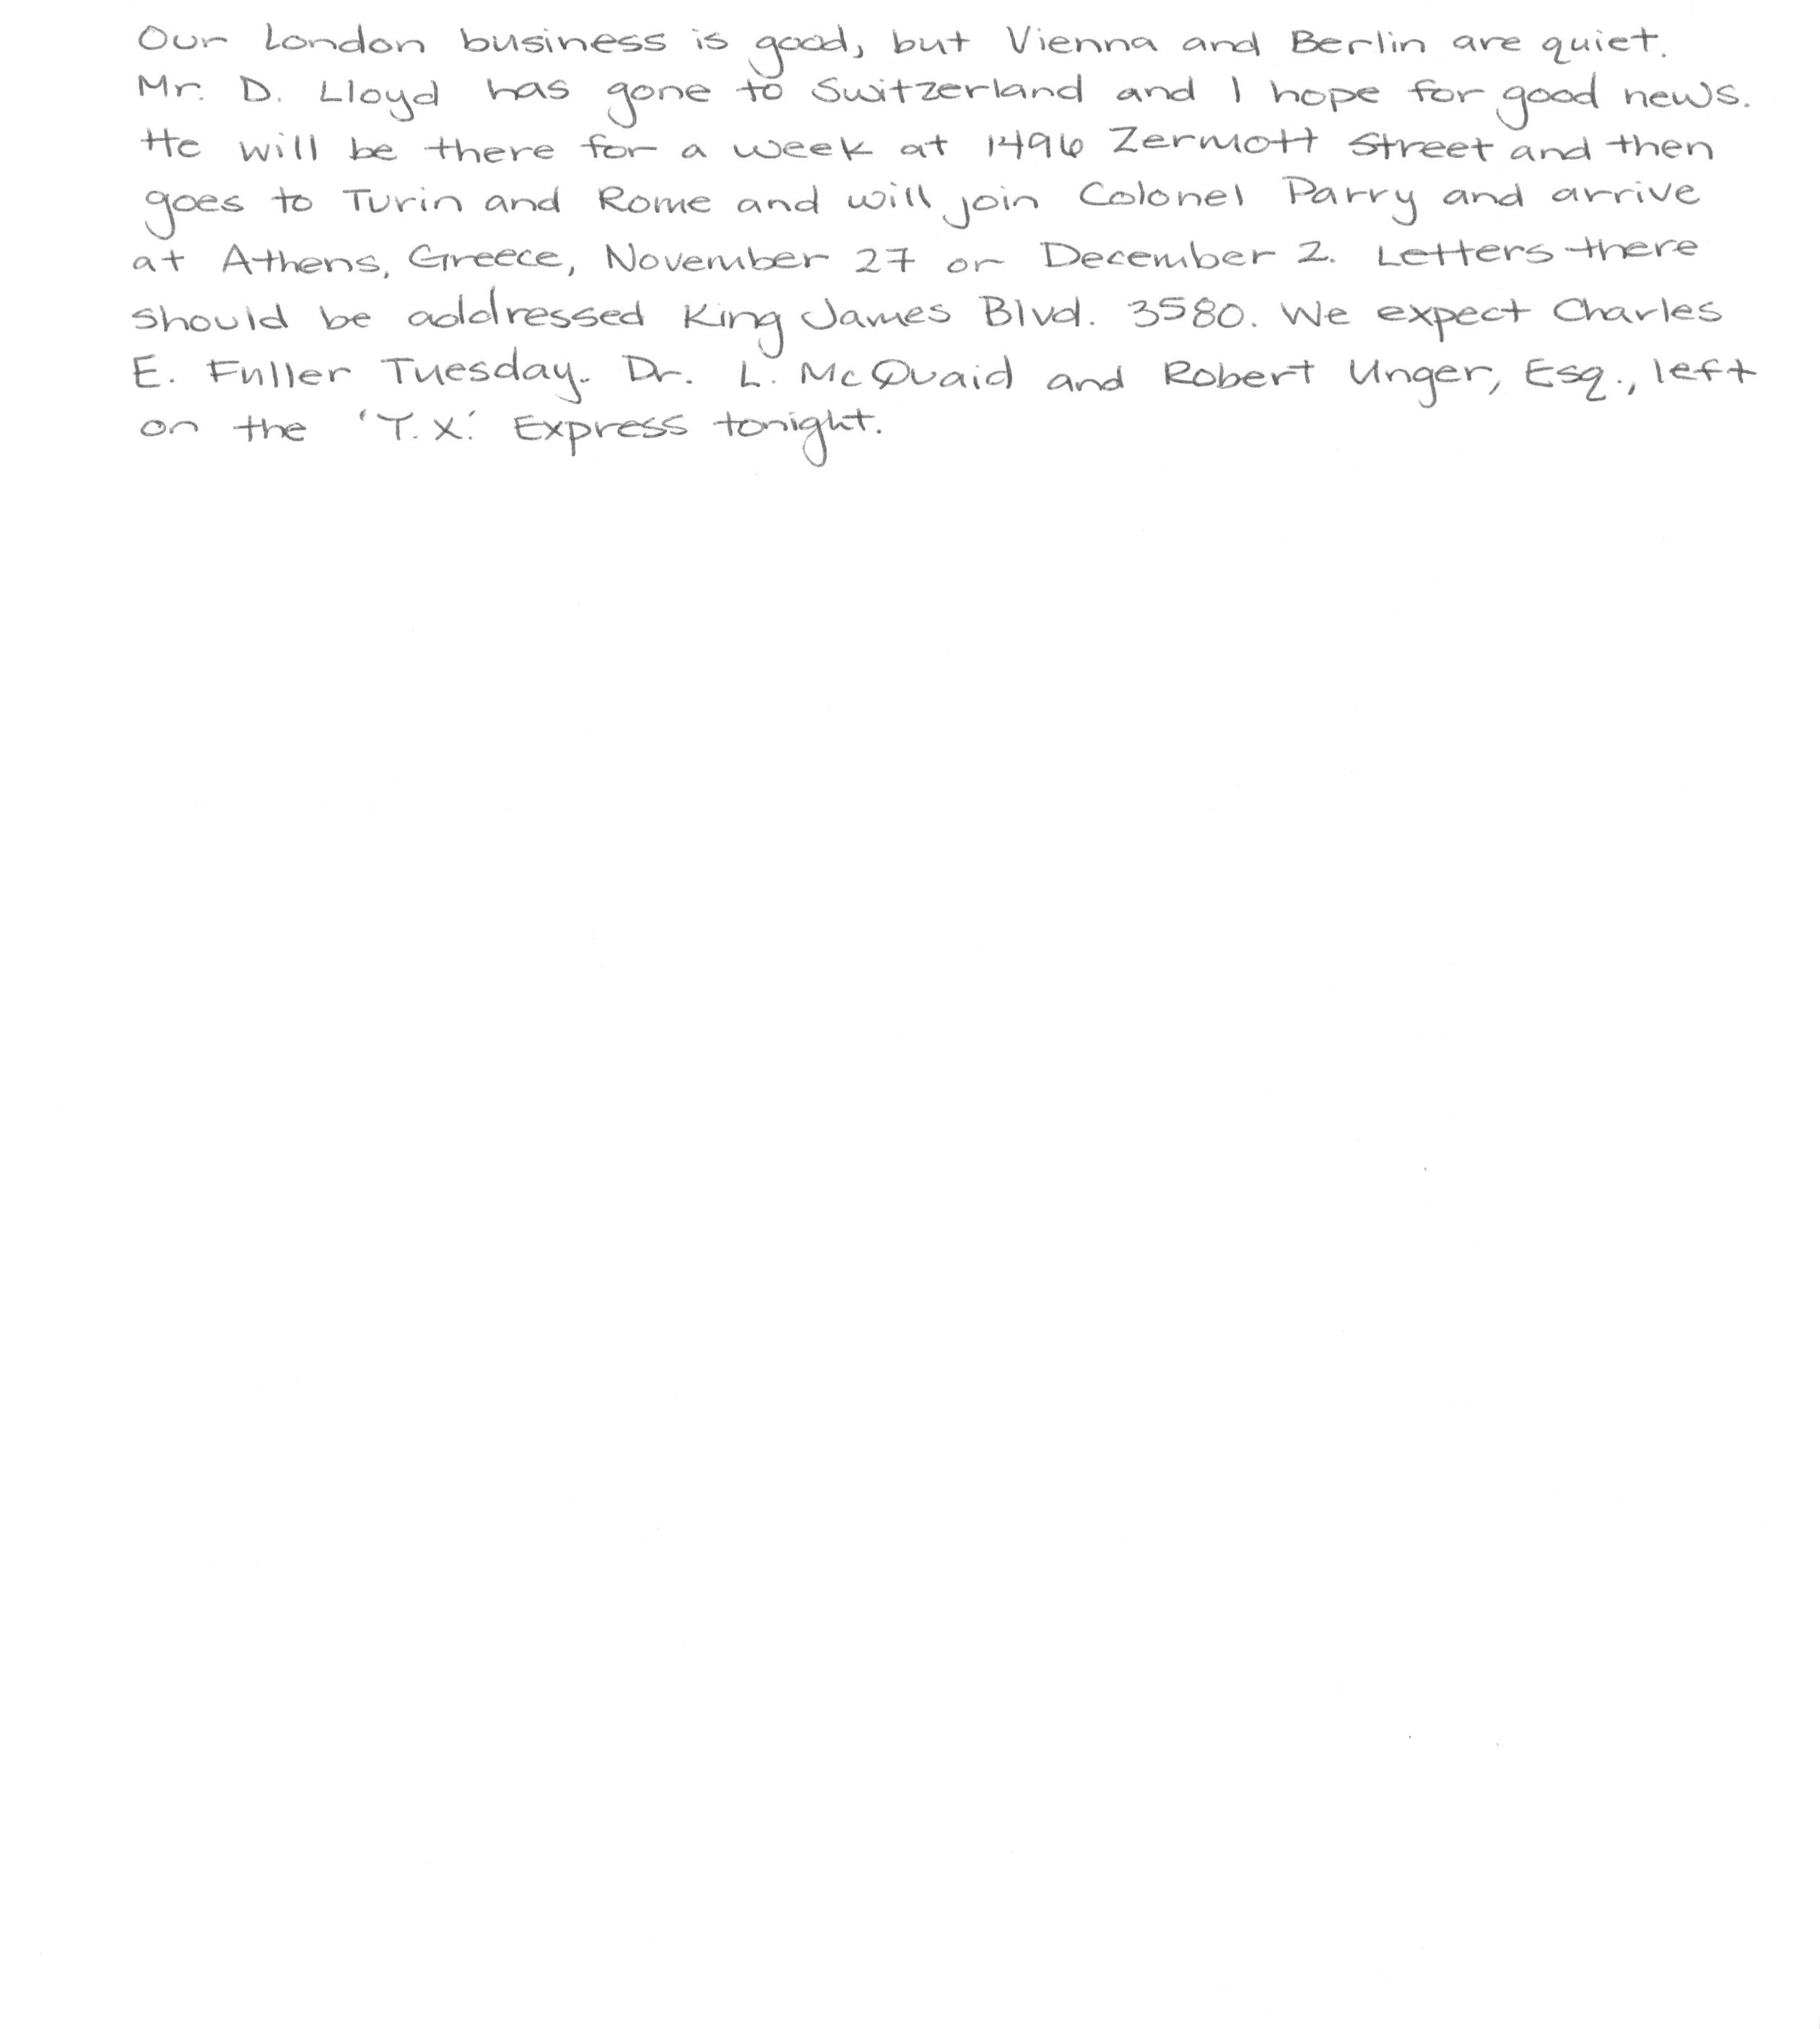 Our London business is good, but Vienna and Berlin are quiet.
Mr. D. Lloyd has gone to Switzerland and I hope for good news.
He will be there for a week at 1496 Zermott Street and then
goes to Turin and Rome and will join Colonel Parry and arrive
at Athens, Greece, November 27 or December 2. Letters there
should be addressed King James Blvd. 3580. We expect Charles
E. Fuller Tuesday. Dr. L. McQuaid and Robert Unger, Esq., left
on the 'T.X.' Express tonight.